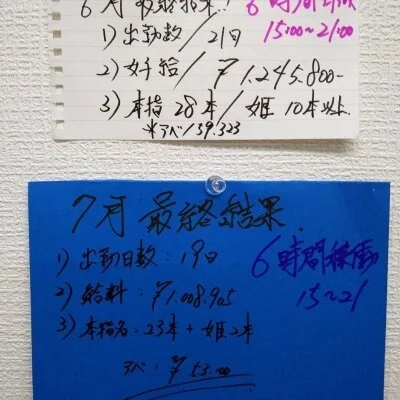 6月 最終結果!
6時間
1) 出勤数/21日
15:00~21:00
2) 好給/¥1,245,800-
3) 本指 28本/姫 10本以上
*アベ/39.323
7月 最終結果.
1) 出勤日数:19日
6時間稼働
2) 給料:¥1,008,905
15~21
3) 本指名:23本+姫2本
アベ:¥53.00